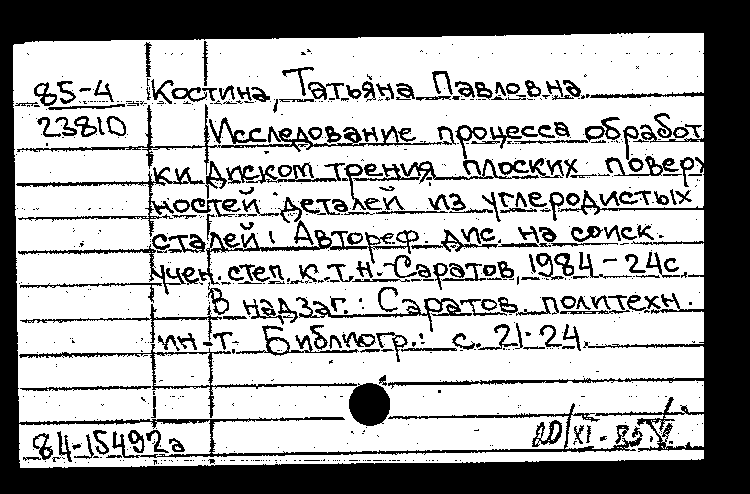 85-4 Костина, Татьяна Павловна.
23810 Исследование процесса обработ
ки диском трения плоских поверх
ностей деталей из углеродистых
сталей: Автореф. дис. на соиск.
учен. степ. к.т.н. - Саратов, 1984 - 24с.
В надзаг.: Саратов. политехн.
ин-т. Библиогр.: с. 21-24.
84-15492а 20/XI-85